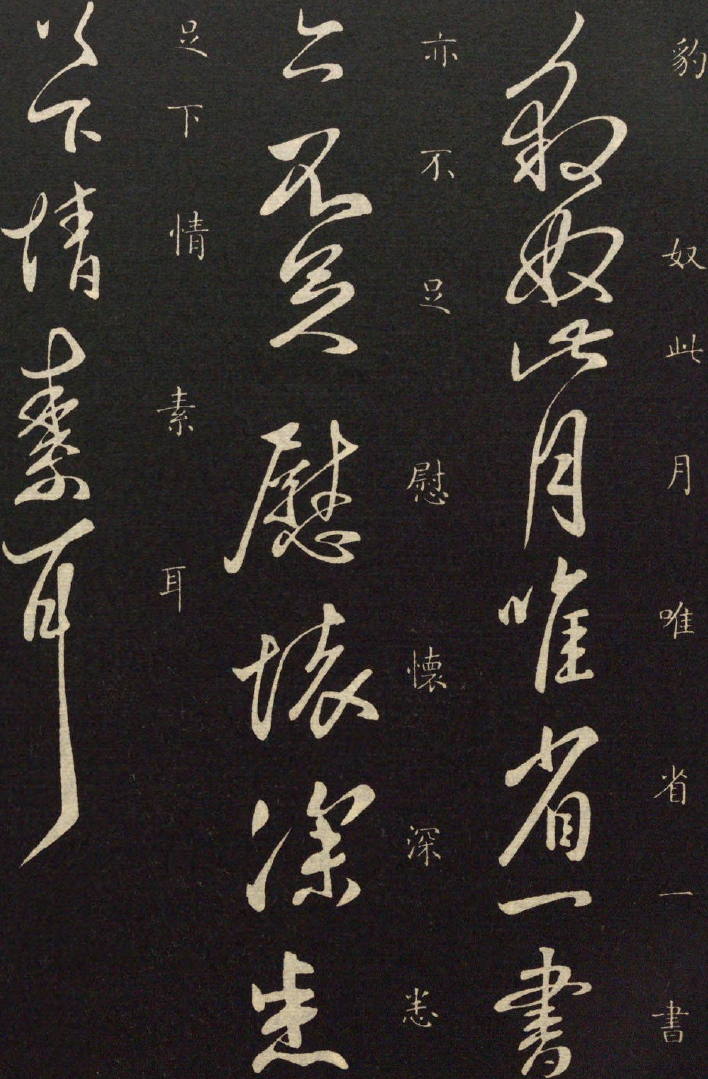 豹奴此月唯省一書
豹奴此月唯省一書
亦不足慰懷深悉
亦不足慰懷深悉
足下情素耳
足下情素耳